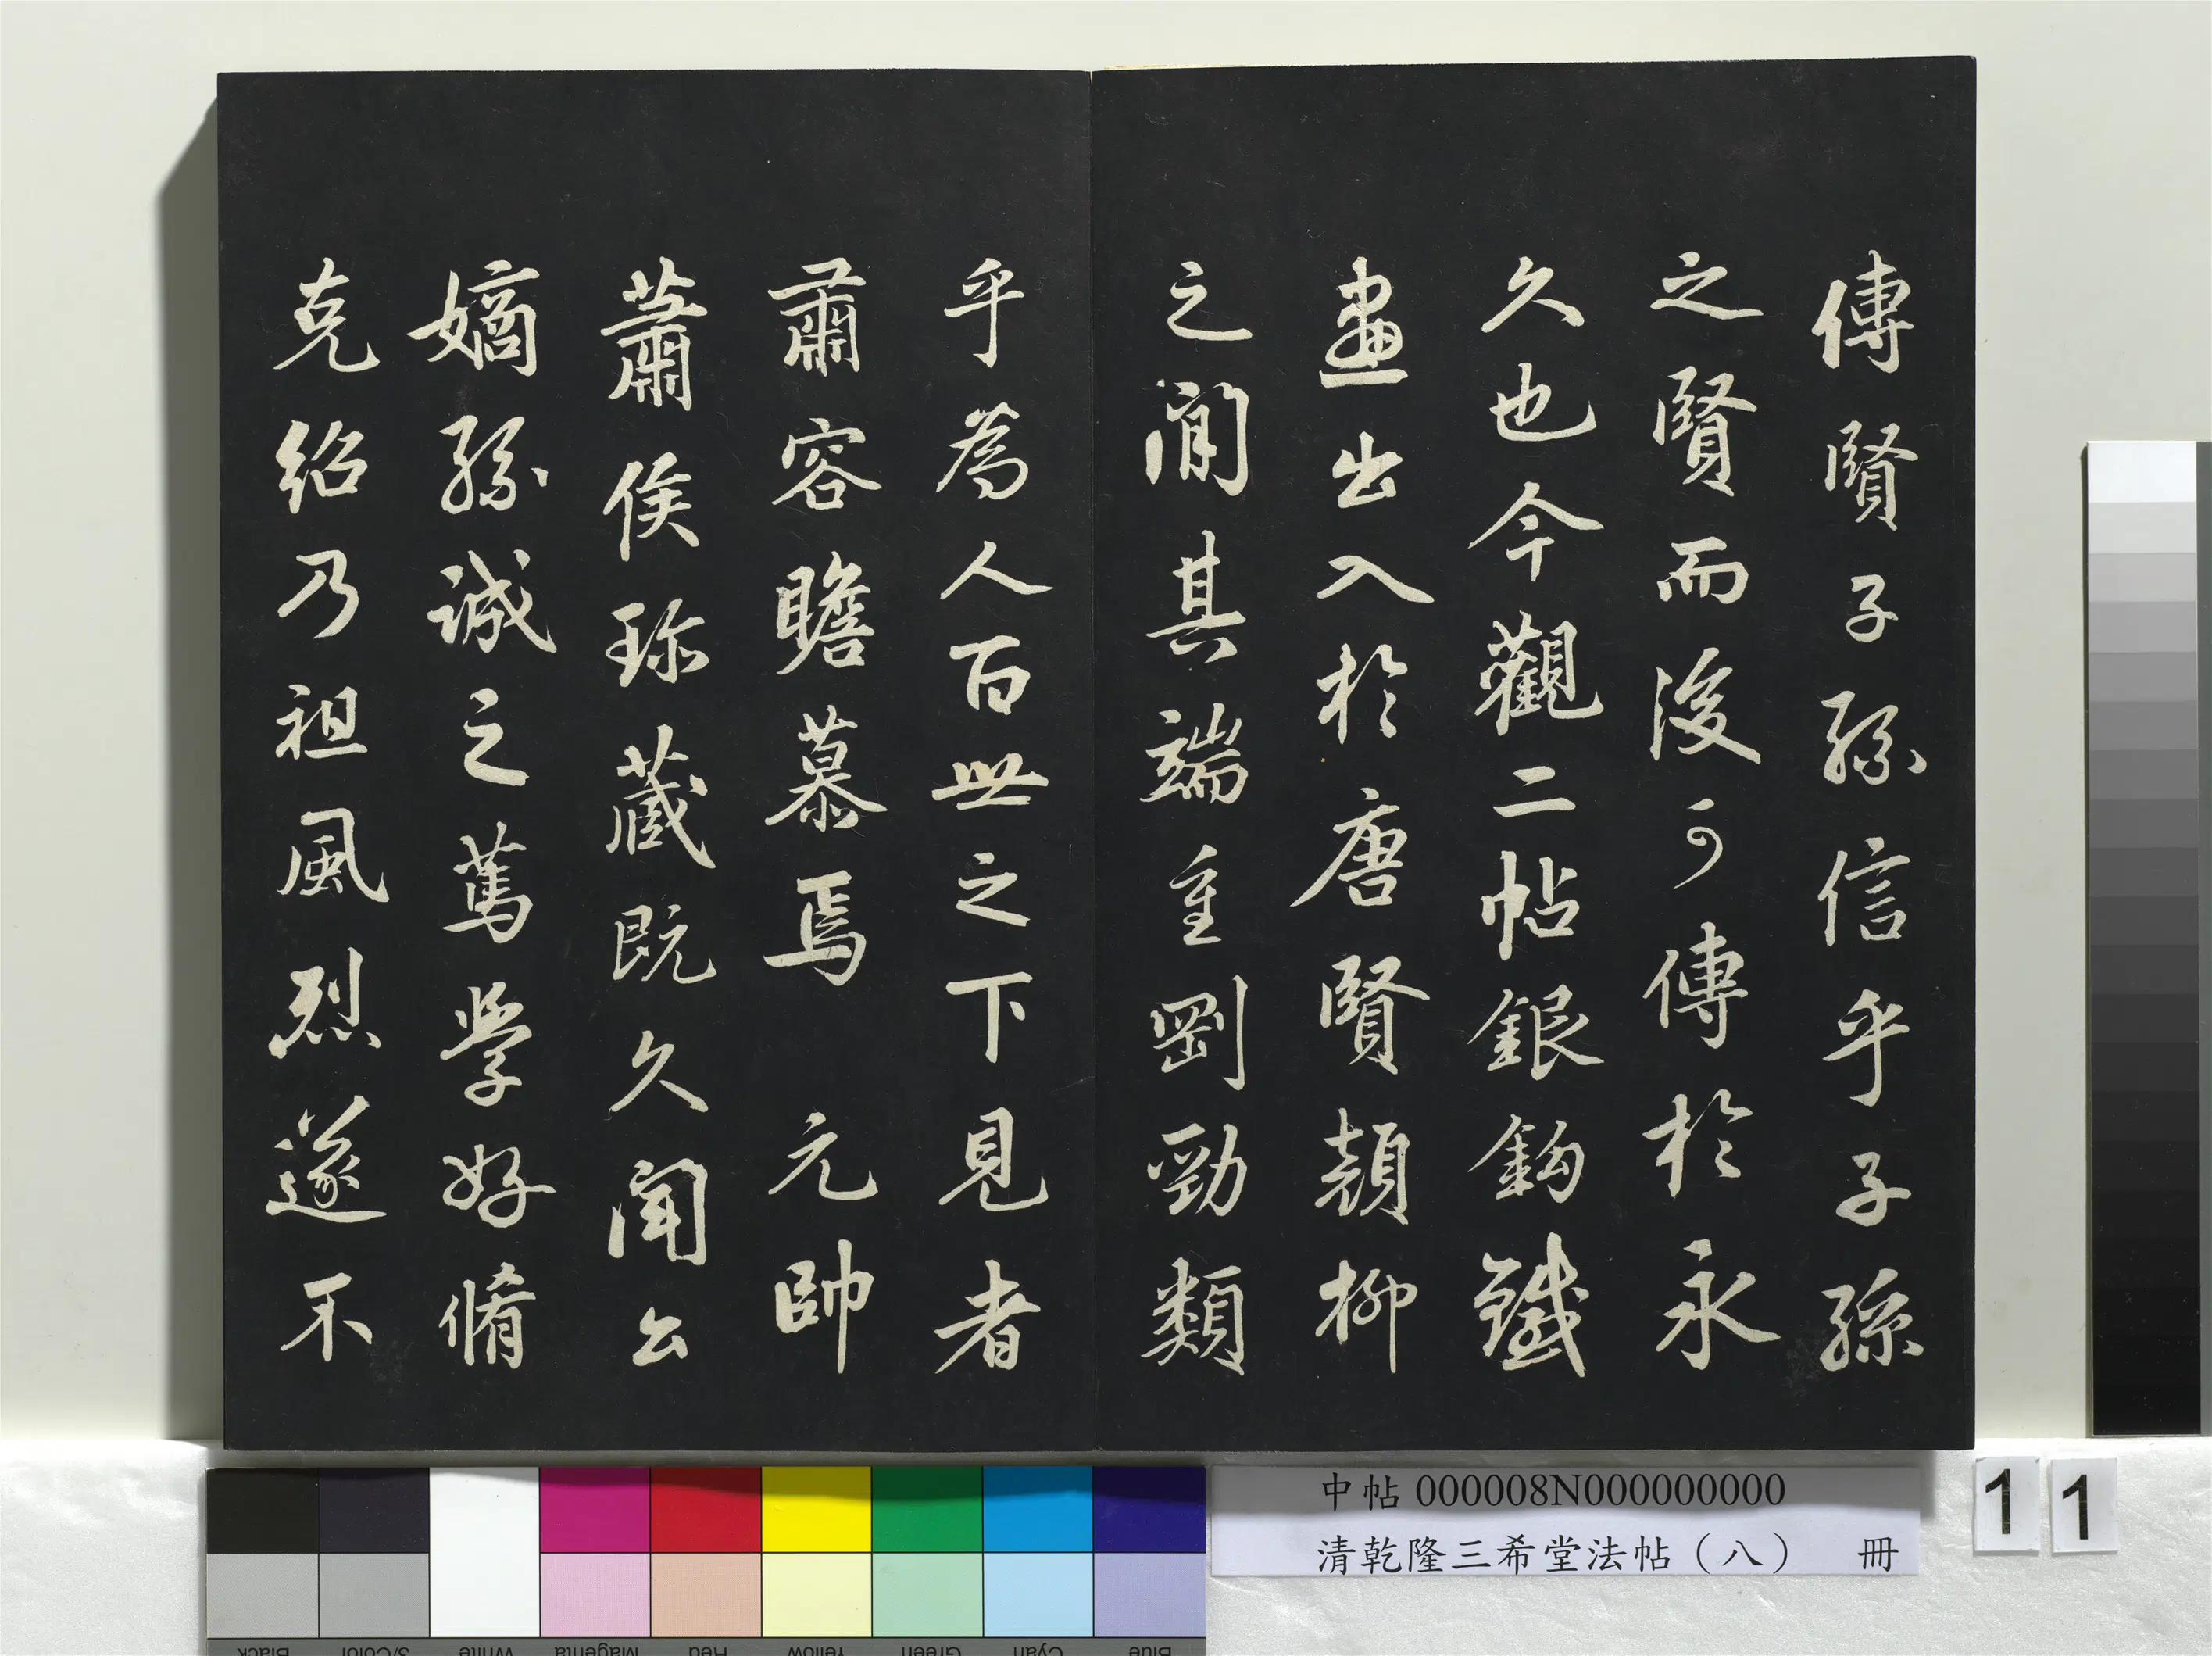 傳賢子孫信乎子孫
之賢而後可傳於永
久也今觀二帖銀鈎鐵
畫出入於唐賢顔柳
之間其端重剛勁類
乎為人百世之下見者
肅容瞻慕焉 元帥
蕭侯珎藏既久聞公
嫡孫誠之篤學好脩
克紹乃祖風烈遂不
中帖 000008N000000000
清乾隆三希堂法帖（八） 冊
1 1
Black 3/Color White Magenta Red Yellow Green Cyan Blue